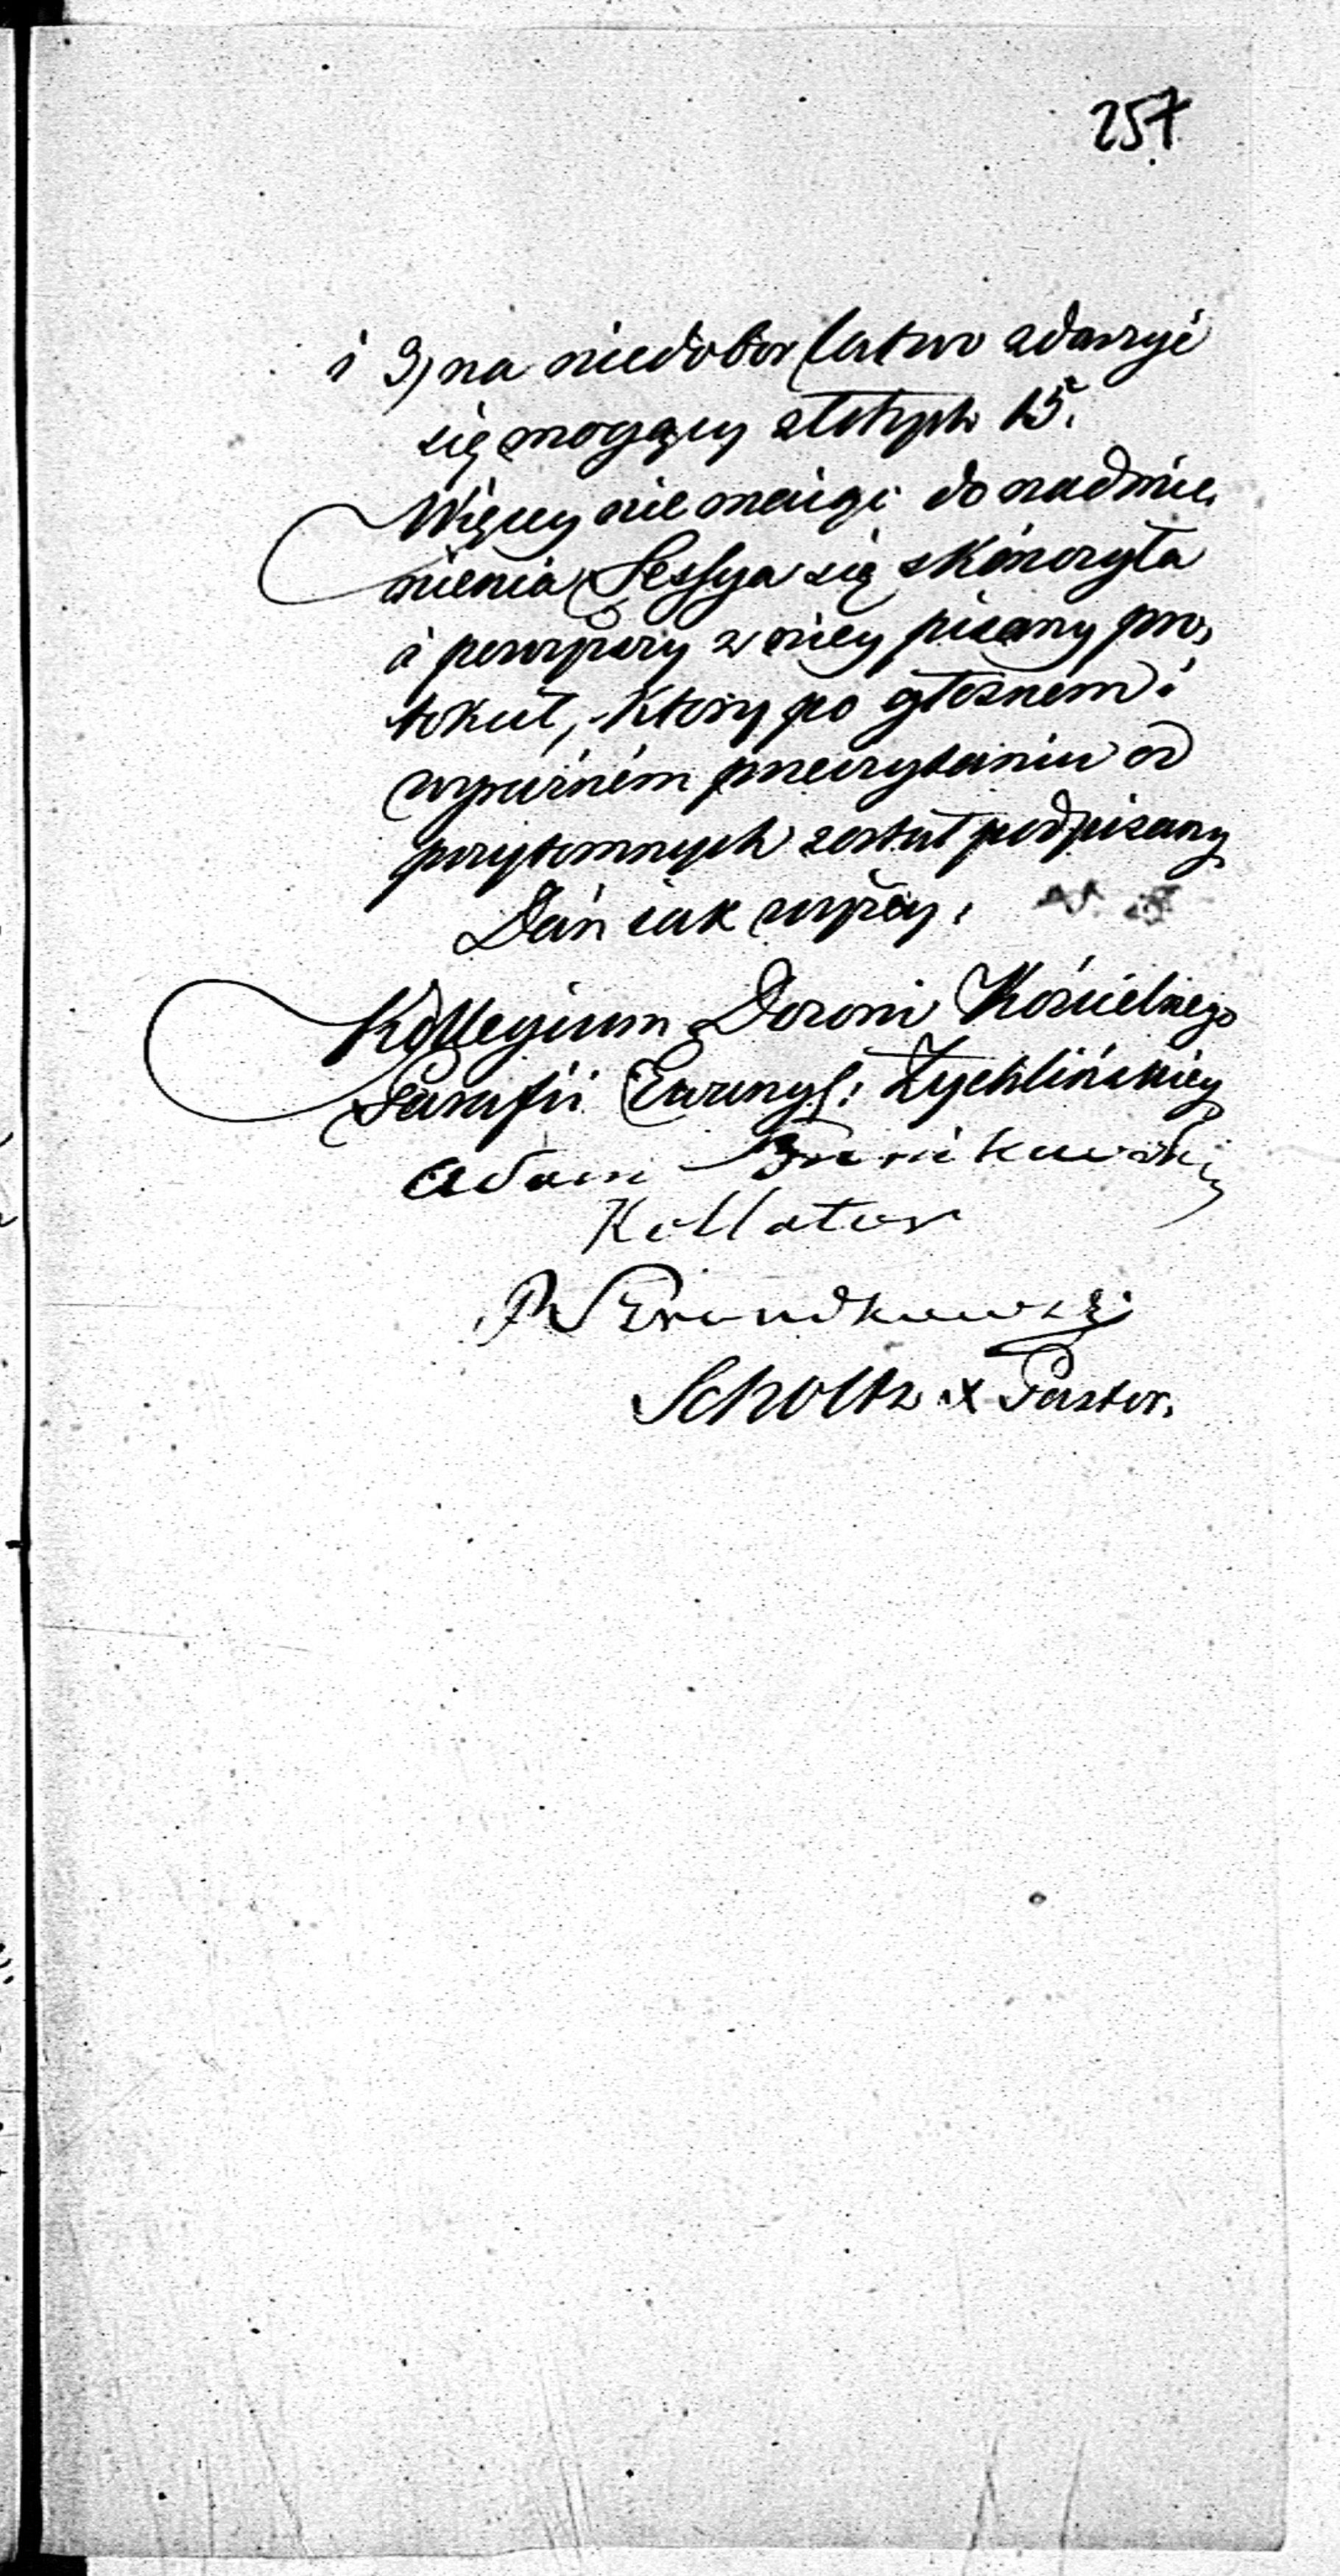 257
i 3) na niedobor łatwo zdarzyć
się mogący złotych 15.
Więcey nie maiąc do nadmie„
nienia Sessya się skończyła
i powyższy w niey pisany pro„
tokuł, ktory po głosnem i
wyraźném przeczytaniu od
przytomnych został podpisany
Dań iak wyżey.
Kollegium Dozoru Kościelnego
Parafii Ewangl: Żychlińskiey
Adam
Kollator
Scholtz X Pastor.